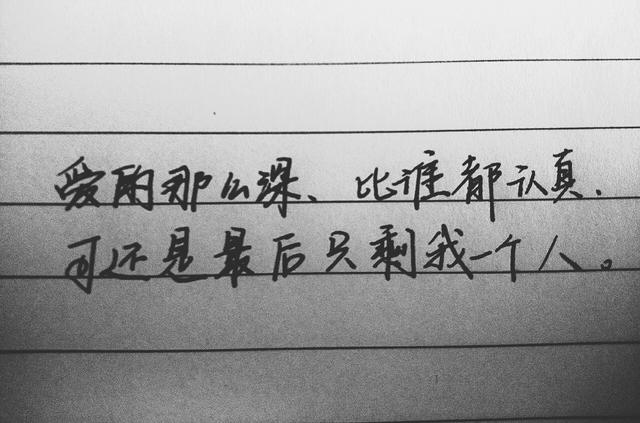 爱的那么深、比谁都认真、
可还是最后只剩我一个人。